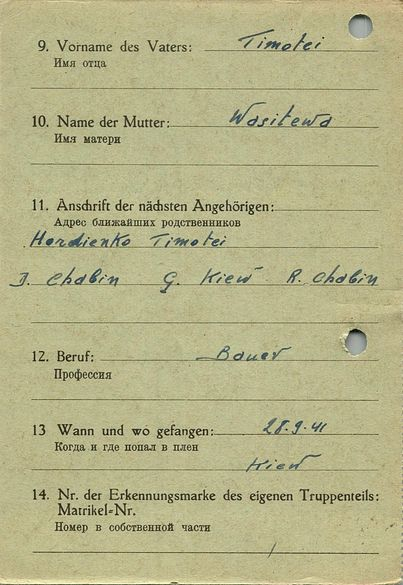 9. Vorname des Vaters: Timotei
Имя отца
10. Name der Mutter: Wasitewa
Имя матери
11. Anschrift der nächsten Angehörigen:
Адрес ближайших родственников
Hordienko Timotei
D. Chabin G. Kiew R. Chabin
12. Beruf: Bauer
Профессия
13 Wann und wo gefangen: 28.9.41
Когда и где попал в плен
Kiew
14. Nr. der Erkennungsmarke des eigenen Truppenteils:
Matrikel-Nr.
Номер в собственной части